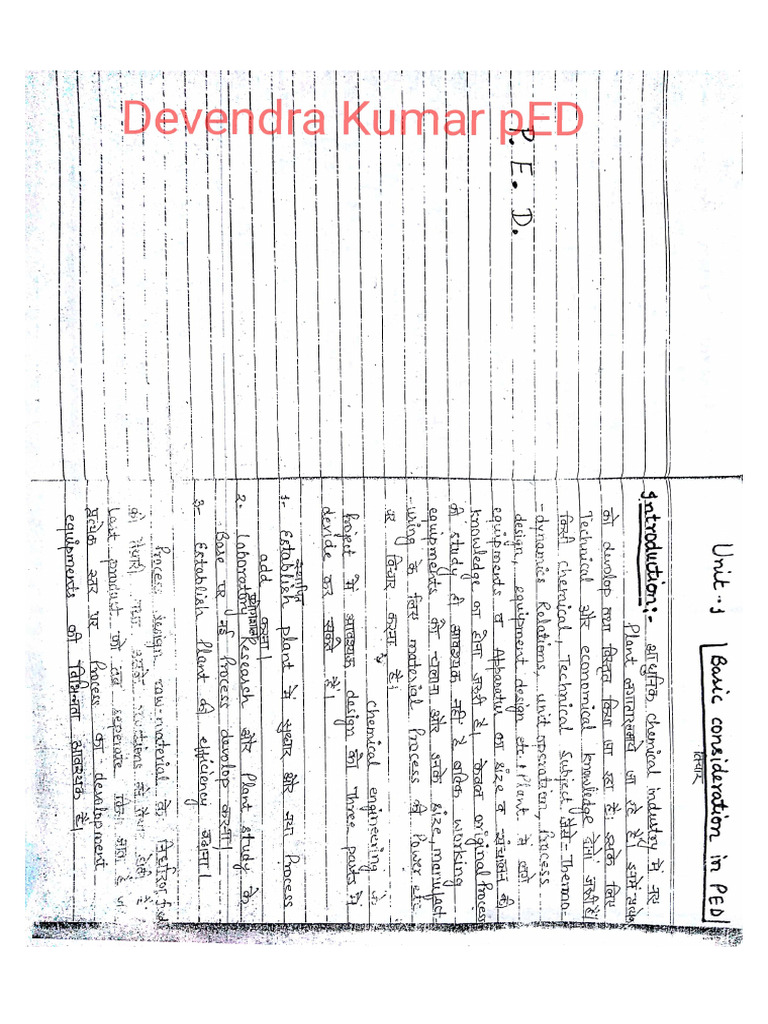 Devendra Kumar pED
P. E. D.
Unit-1 Basic consideration in PED
विचार
Introduction:- आधुनिक chemical industry में नए
Plant लगातार लगाये जा रहे हैं
को develop तथा विस्तृत किया जा रहा है। इसके लिए
Technical और economical knowledge होना जरूरी है।
किसी chemical Technical Subject जैसे - Thermo-
-dynamics Relations, unit operation, Process
design, equipment design etc. Plant में लगे
equipments व Apparatus का size व संचालन की
knowledge का होना जरूरी है। केवल original Process
की study ही आवश्यक नहीं है बल्कि working
equipments को चलाना और उनके size, manufact
using के लिए material Process की Power etc.
पर विचार करना है।
chemical engineering के
Project में आवश्यक design को three parts में
devide कर सकते हैं।
स्थापित
1. Establish plant में सुधार और नया Process
add करना।
प्रयोगशाला
2. Laboratory Research और Plant study के
Base पर नई Process develop करना।
3- Establish Plant की efficiency बढ़ाना।
Process design raw-material के
को तैयारी तथा उसके
Last product को
प्रत्येक स्तर पर Process का development
equipments की विभिन्नता आवश्यक है।